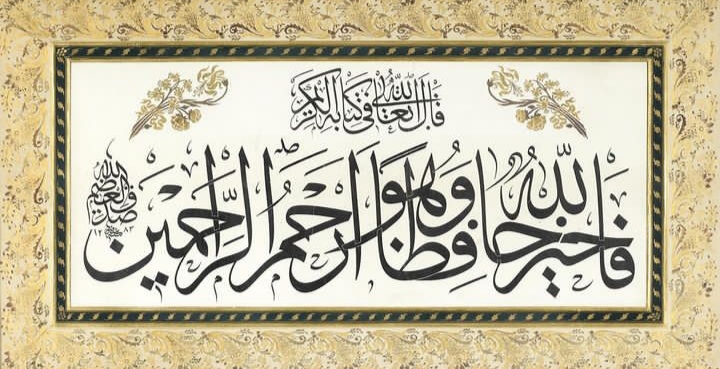 قال الله تعالى في كتابه الكريم
فالله خير حافظا وهو ارحم الراحمين
صدق الله العظيم